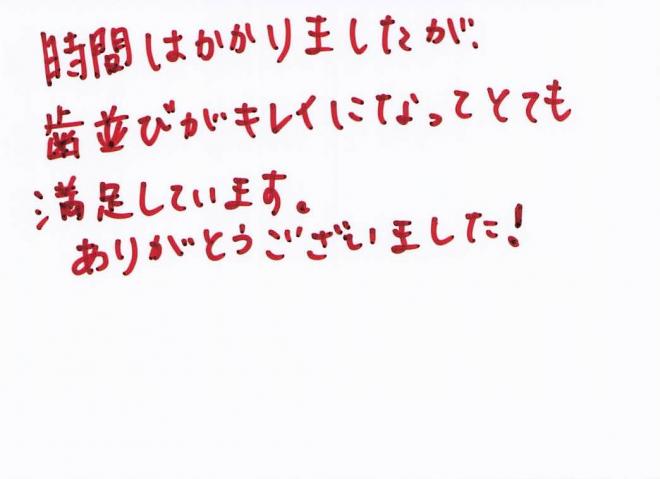 時間はかかりましたが、
歯並びがキレイになってとても
満足しています。
ありがとうございました!